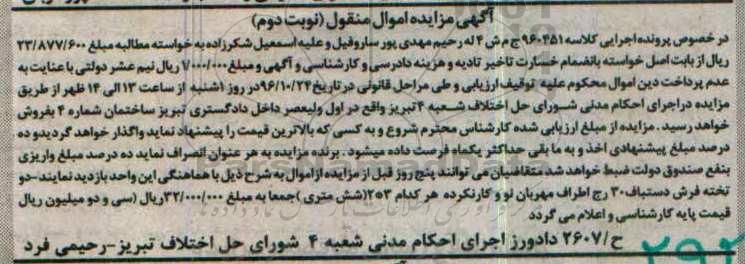 آگهی مزایده اموال منقول (نوبت دوم)
در خصوص پرونده اجرایی کلاسه 960451 ج م ش 4 له رحیم مهدی پور ساروفیل و علیه اسمعیل شکرزاده به خواسته مطالبه مبلغ 23/877/600
ریال از بابت اصل خواسته بانضمام خسارت تاخیر تادیه و هزینه دادرسی و کارشناسی و آگهی و مبلغ 1/000/000 ریال نیم عشر دولتی با عنایت به
عدم پرداخت دین اموال محکوم علیه توقیف ارزیابی و طی مراحل قانونی در تاریخ 96/10/24 در روز 1شنبه از ساعت 13 الی 14 ظهر از طریق
مزایده در اجرای احکام مدنی شورای حل اختلاف شعبه 4 تبریز واقع در اول ولیعصر داخل دادگستری تبریز ساختمان شماره 4 بفروش
خواهد رسید. مزایده از مبلغ ارزیابی شده کارشناس محترم شروع و به کسی که بالاترین قیمت را پیشنهاد نماید واگذار خواهد گردید و ده
درصد مبلغ پیشنهادی اخذ و به ما بقی حداکثر یکماه فرصت داده میشود. برنده مزایده به هر عنوان انصراف نماید ده درصد مبلغ واریزی
بنفع صندوق دولت ضبط خواهد شد متقاضیان می توانند پنج روز قبل از مزایده از اموال به شرح ذیل با هماهنگی این واحد بازدید نمایند-دو
تخته فرش دستباف 30 رج اطراف مهربان نو و کارنکرده هر کدام 3×2 (شش متری) جمعا به مبلغ 32/000/000 ریال (سی و دو میلیون ریال
قیمت پایه کارشناسی و اعلام می گردد
ح/2607 دادورز اجرای احکام مدنی شعبه 4 شورای حل اختلاف تبریز-رحیمی فرد